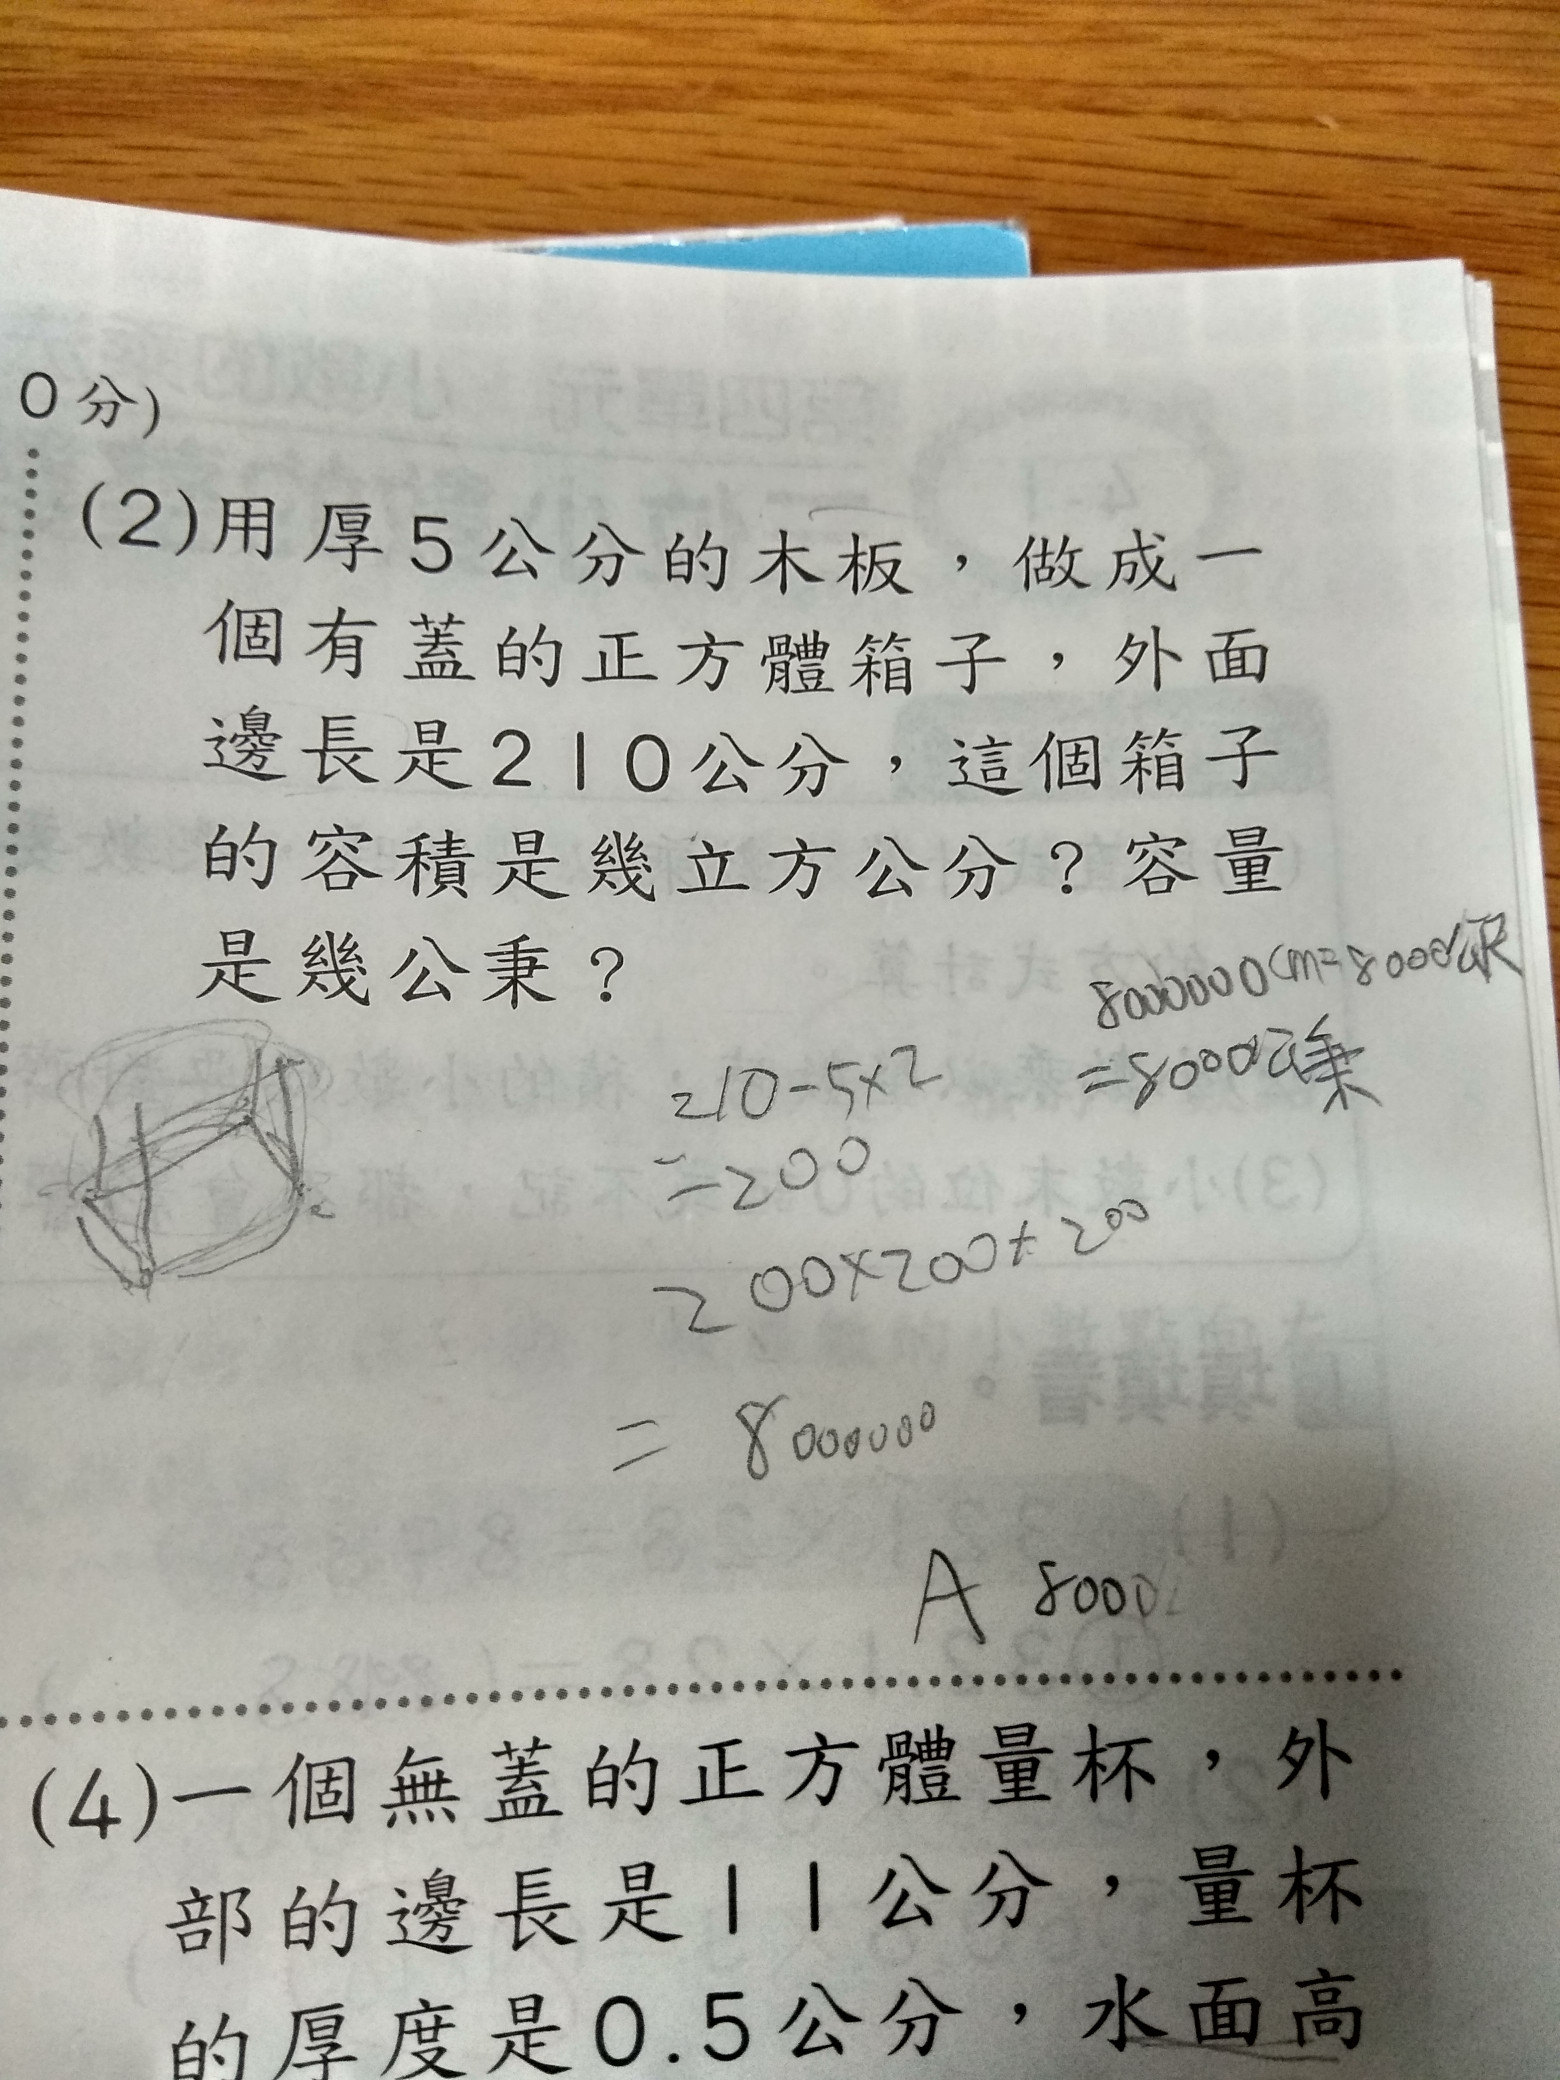 0分)
(2)用厚5公分的木板，做成一
個有蓋的正方體箱子，外面
邊長是210公分，這個箱子
的容積是幾立方公分？容量
是幾公秉？
8000000cm=8000
=8000公秉
210-5×2
=200
200×200×200
= 8000000
A 8000
(4)一個無蓋的正方體量杯，外
部的邊長是11公分，量杯
的厚度是0.5公分，水面高